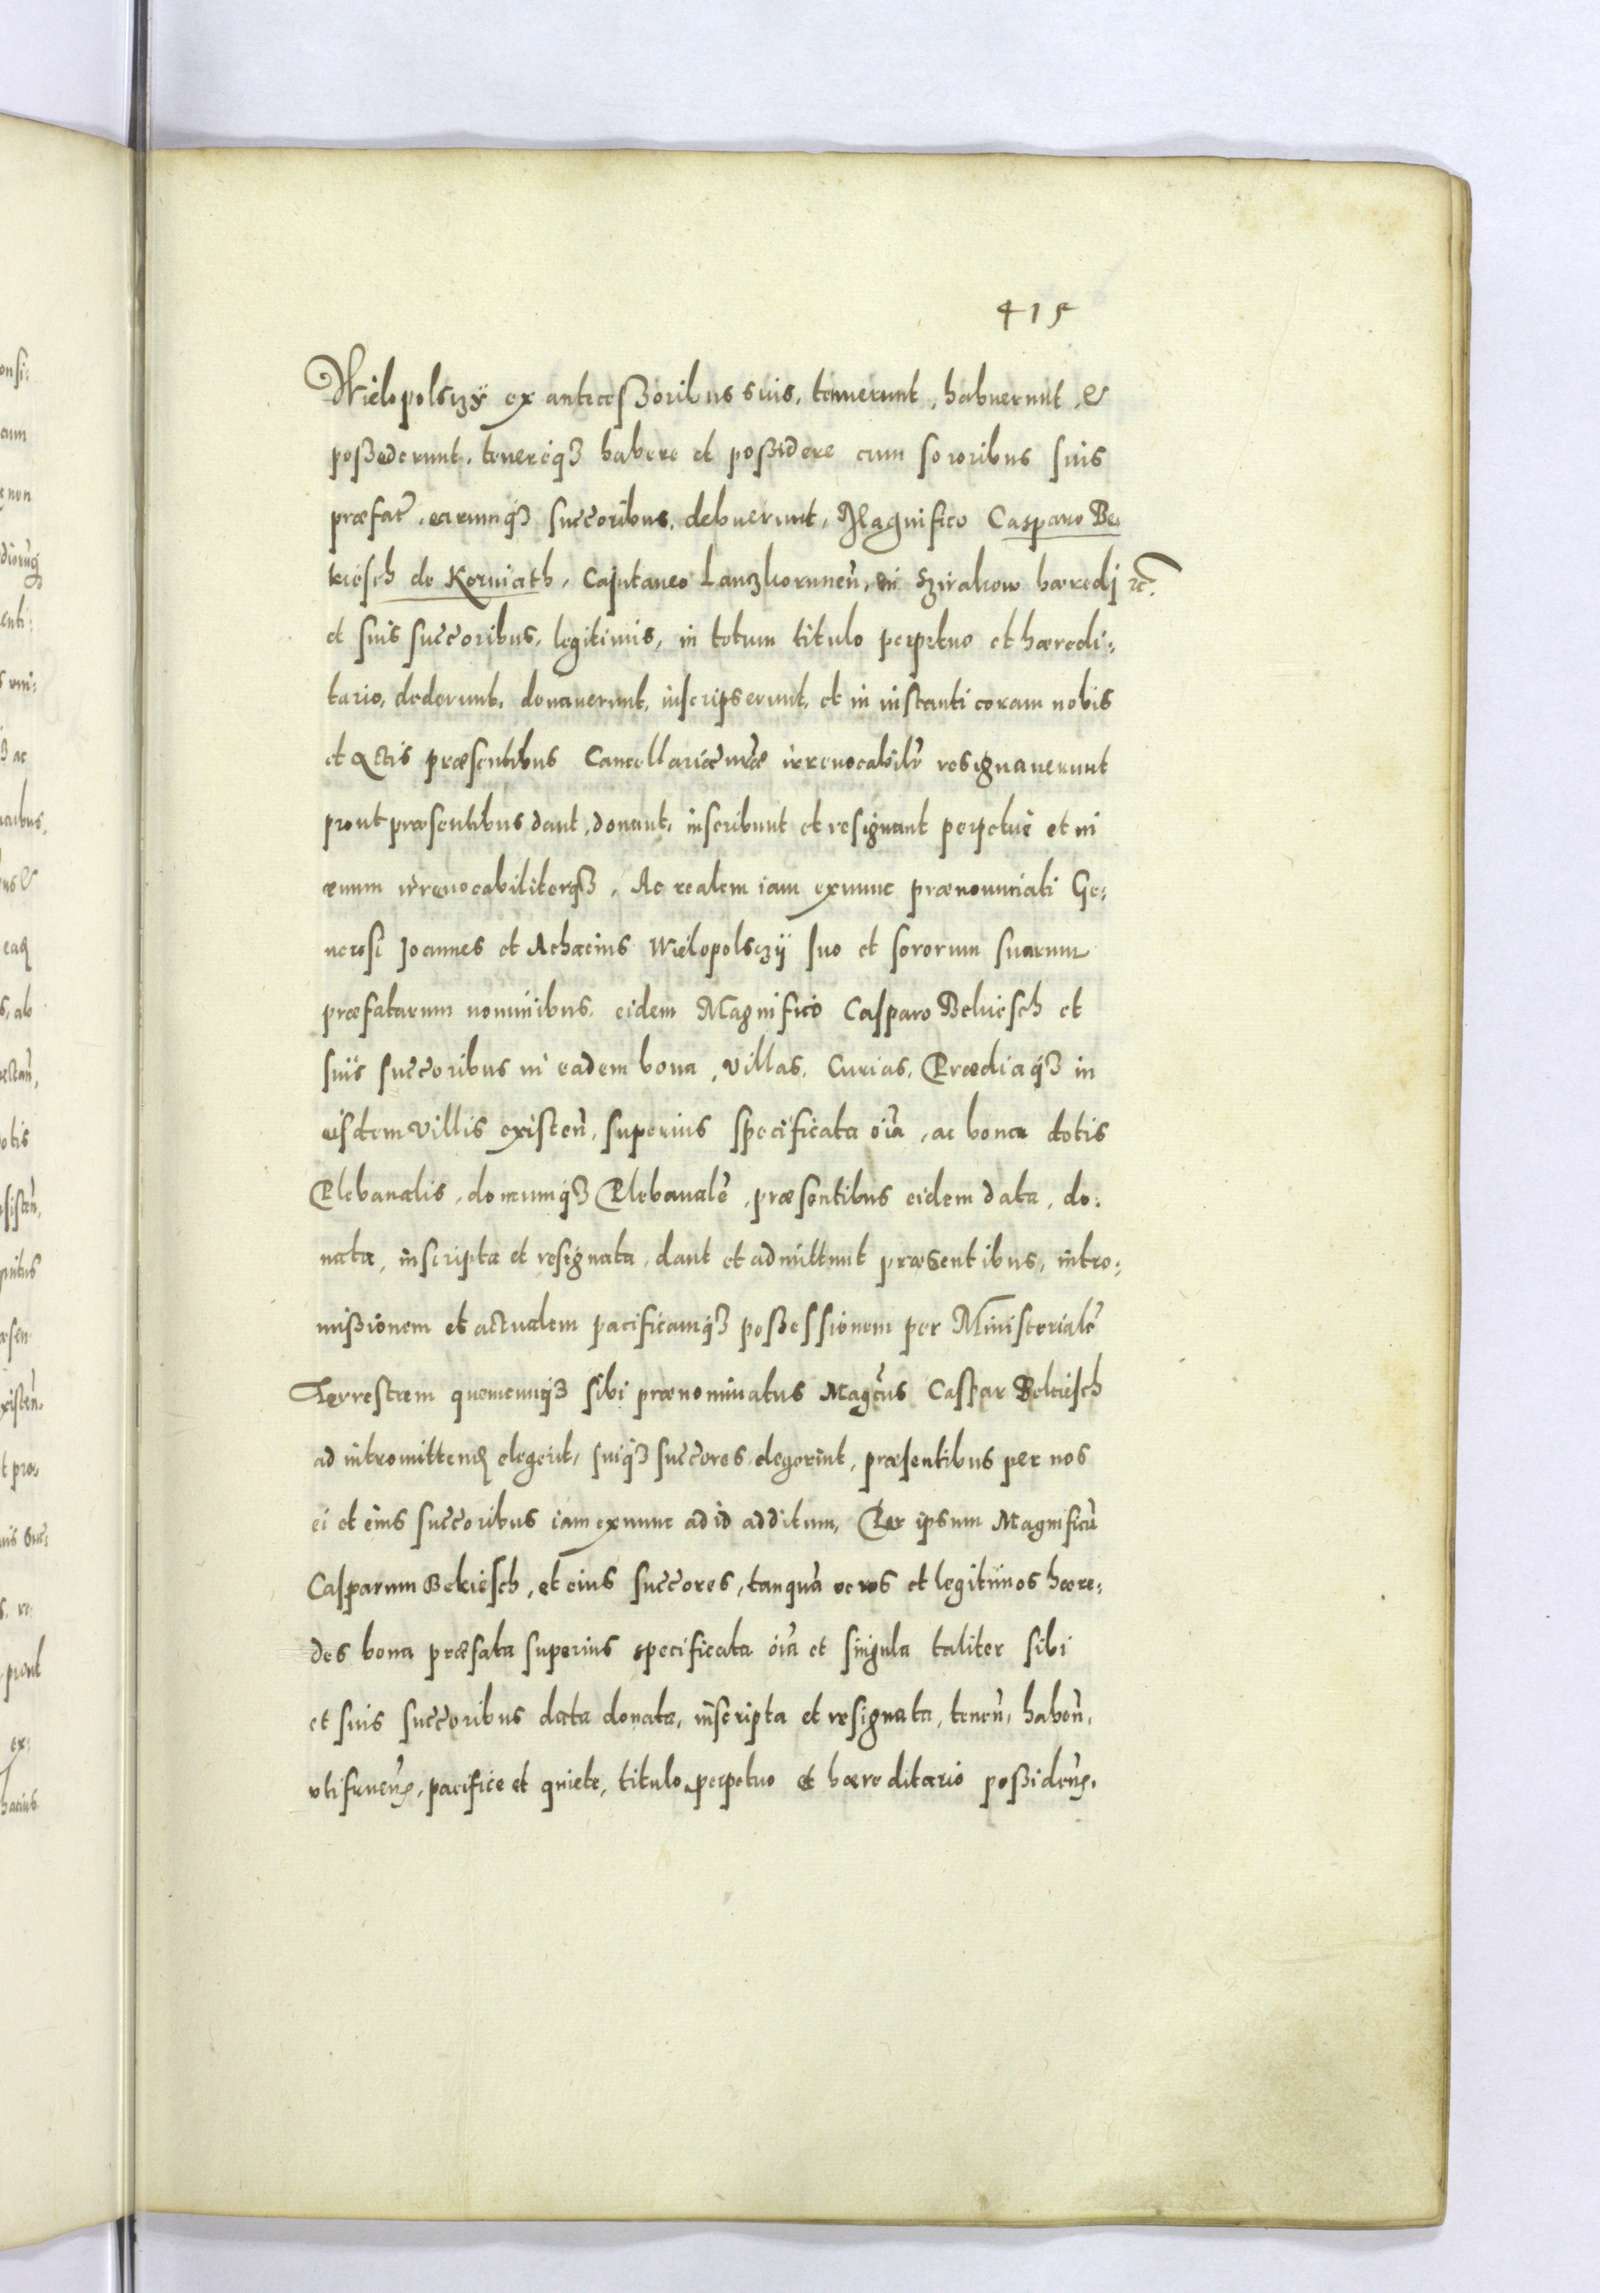 415
Wielopolsczÿ ex anteceßoribus suis, tenuerunt, habuerunt, &
poßederunt, tenereqꝫ habere et poßidere cum sororibus suis
præfat̃, earumqꝫ succ̃oribus, debuerunt, Magnifico Casparo Be,
kiesch de Korniath, Capitaneo Lanczkorunen̄, in Szirakow hæredj ꝛc̃.
et suis succ̃oribus, legitimis, in totum titulo perpetuo et hæredi,
tario, dederunt, donauerunt, inscripserunt, et in instanti coram nobis
et Actis præsentibus Cancellariæ nr̃æ irreuocabilr̃ resignauerunt
prout præsentibus dant, donant, inscribunt et resignant perpetue et in
æuum irreuocabiliterqꝫ, Ac realem iam exnunc prænominati Ge,
nerosi Joannes et Achacius Wielopolsczÿ suo et sororum suarum
præfatarum nominibus, eidem Magnifico Casparo Bekiesch et
suis succ̃oribus in eadem bona, Villas, Curias, Prædiaqꝫ in
eisdem Villis existen̄, superius specificata oı̃a, ac bona dotis
Plebanalis, domumqꝫ Plebanalẽ, præsentibus eidem data, do,
nata, inscripta et resignata, dant et admittunt præsentibus, intro,
mißionem et actualem pacificamqꝫ poßessionem per Ministerialẽ
Terrestrem quemcunqꝫ sibi prænominatus Magc̃us Caspar Bekiesch
ad intromitten̄ elegerit, suiqꝫ succ̃ores elegerint, præsentibus per nos
ei et eius succ̃oribus iam exnunc ad id additum, Per ipsum Magnificũ
Casparum Bekiesch, et eius succ̃ores, tanquã veros et legitimos hære,
des bona præfata superius specificata oı̃a et singula taliter sibi
et suis succ̃oribus data donata, inscripta et resignata, tenen̄, haben̄,
vtifruen̄, pacifice et quiete, titulo perpetuo et hæreditario poßiden̄,